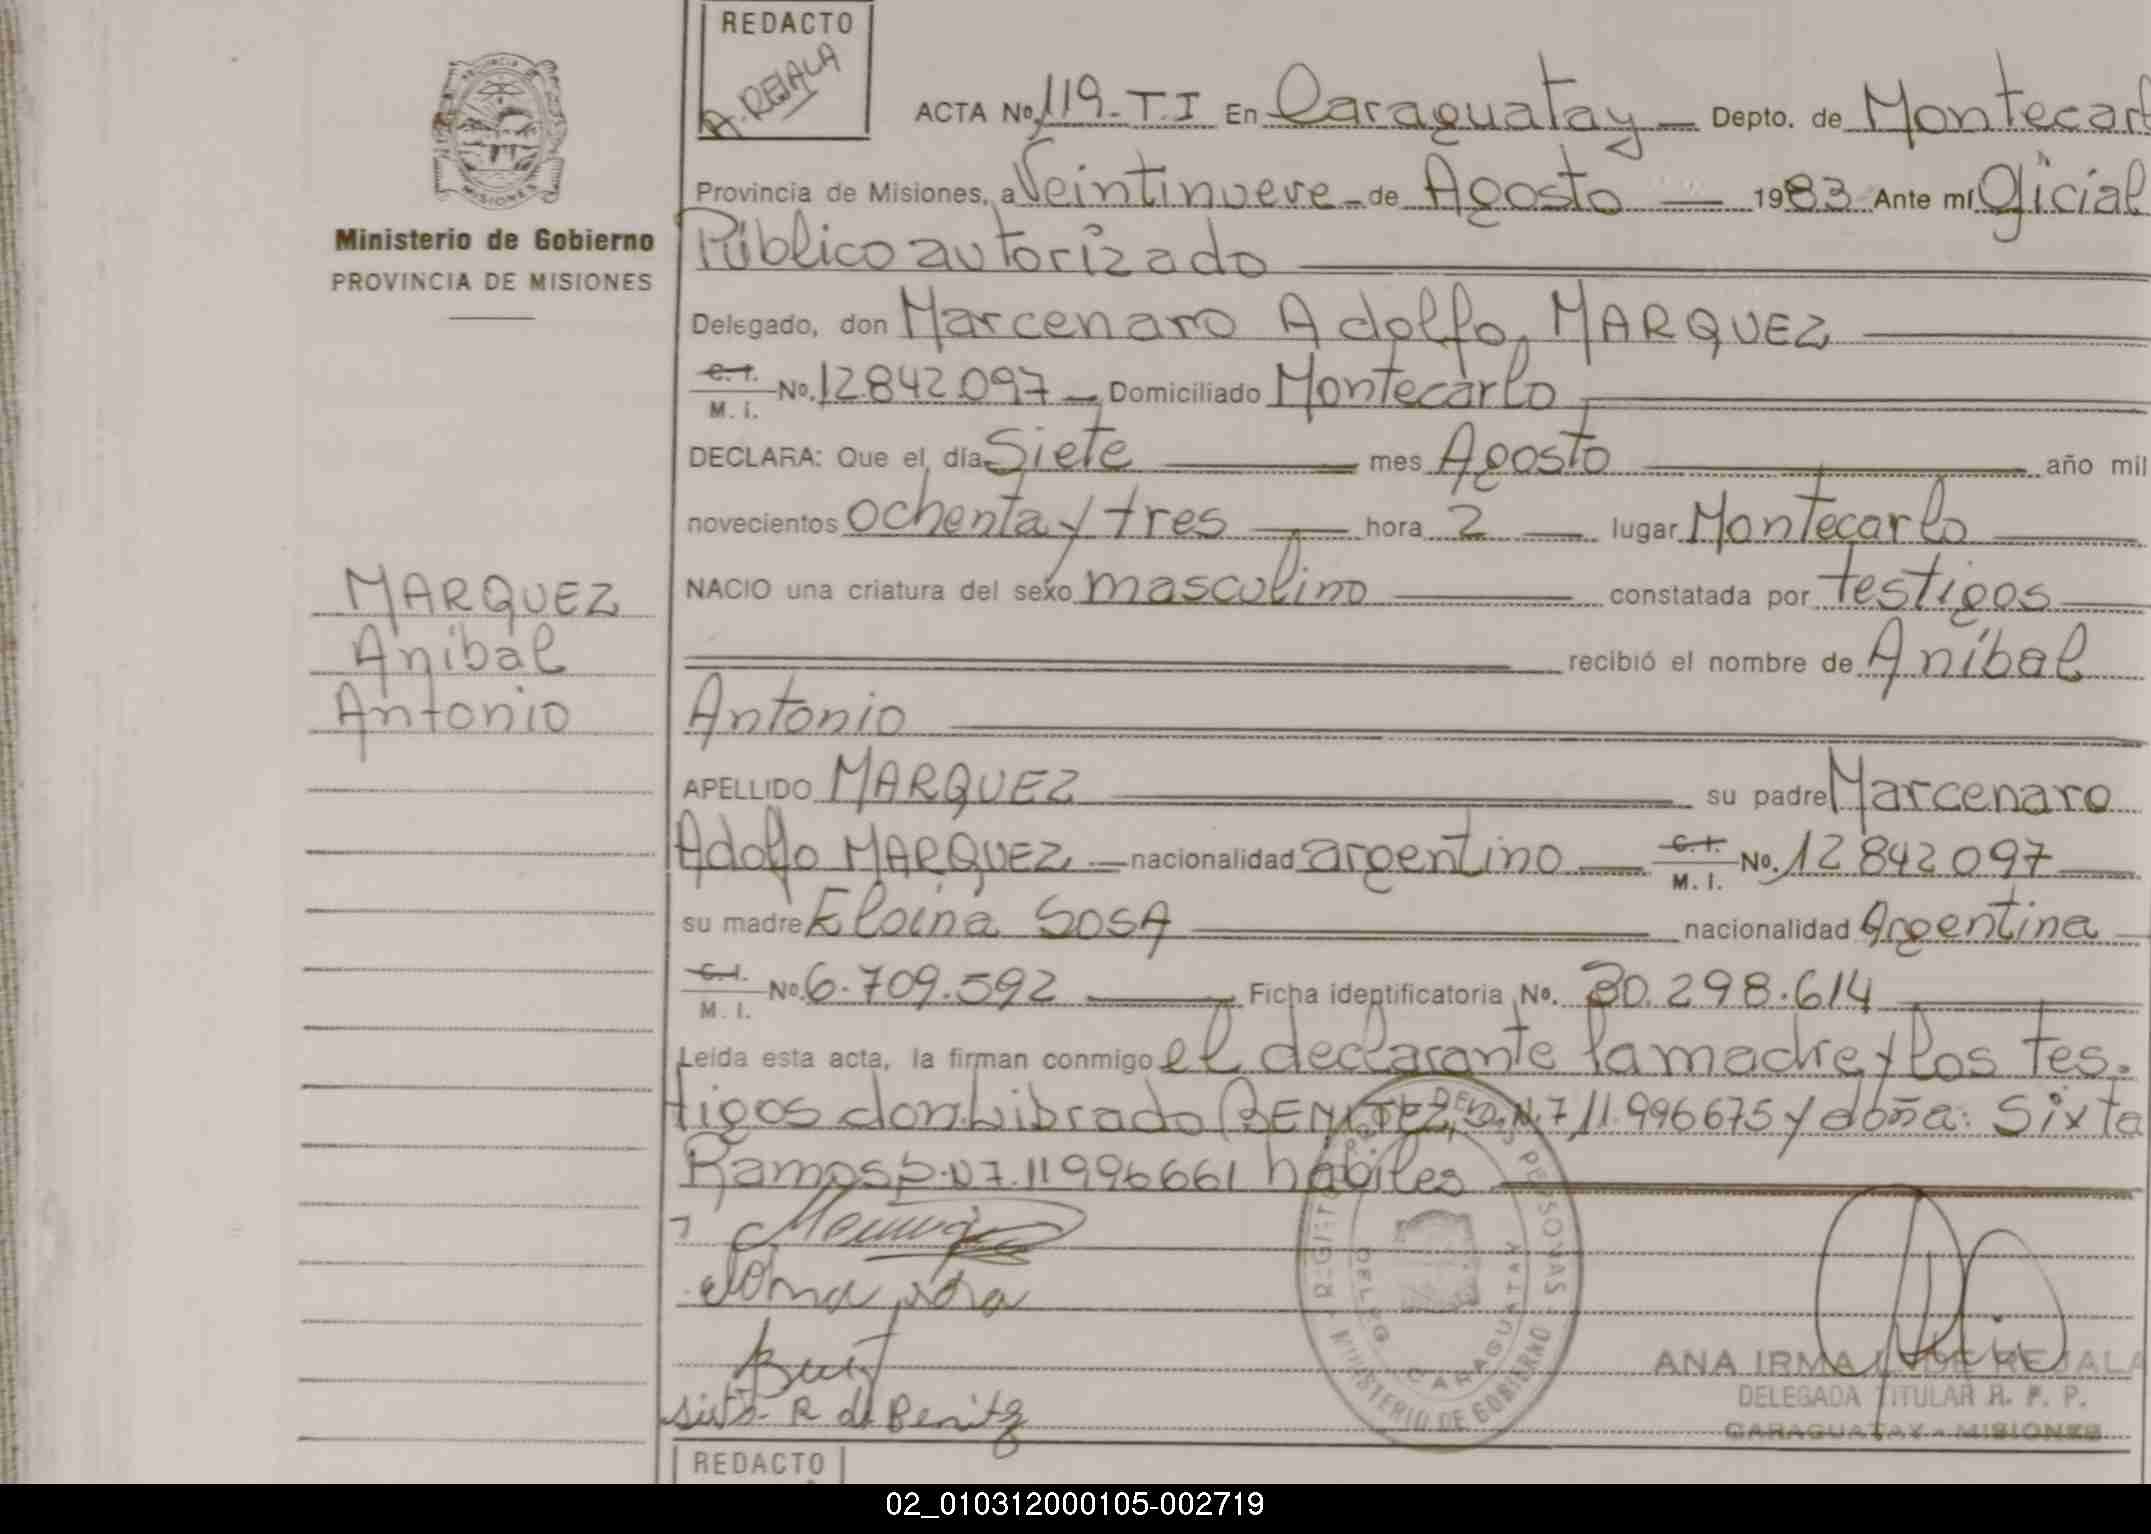 REDACTO
A. REJALA
ACTA No. 119-T.I En Caraguatay Depto. de Montecarl
Provincia de Misiones, a Veintinueve de Agosto 1983 Ante mí Oficial
Público autorizado
Ministerio de Gobierno
PROVINCIA DE MISIONES
Delegado, don Marcenaro Adolfo, MARQUEZ
C.I. M.I. No. 12.842.097 Domiciliado Montecarlo
DECLARA: Que el día Siete mes Agosto año mil
novecientos ochenta y tres hora 2 lugar Montecarlo
NACIO una criatura del sexo masculino constatada por testigos
recibió el nombre de Aníbal
Antonio
MARQUEZ
Aníbal
Antonio
APELLIDO MARQUEZ su padre Marcenaro
Adolfo MARQUEZ nacionalidad argentino C.I. M.I. No. 12 842 097
su madre Eloina SOSA nacionalidad Argentina
C.I. M.I. No. 6.709.592 Ficha identificatoria No. 30.298.614
Leída esta acta, la firman conmigo el declarante la madre y los tes-
tigos don: Librado BENITEZ, D.N.7 11.996675 y doña: Sixta
Ramos D.N7.11996661 hábiles
Sixta R de Benitez
REGISTRO DE LAS PERSONAS
MINISTERIO DE GOBIERNO
DELEG. CARAGUATAY
ANA IRMA DE REJALA
DELEGADA TITULAR R. P. P.
CARAGUATAY - MISIONES
REDACTO
02_010312000105-002719